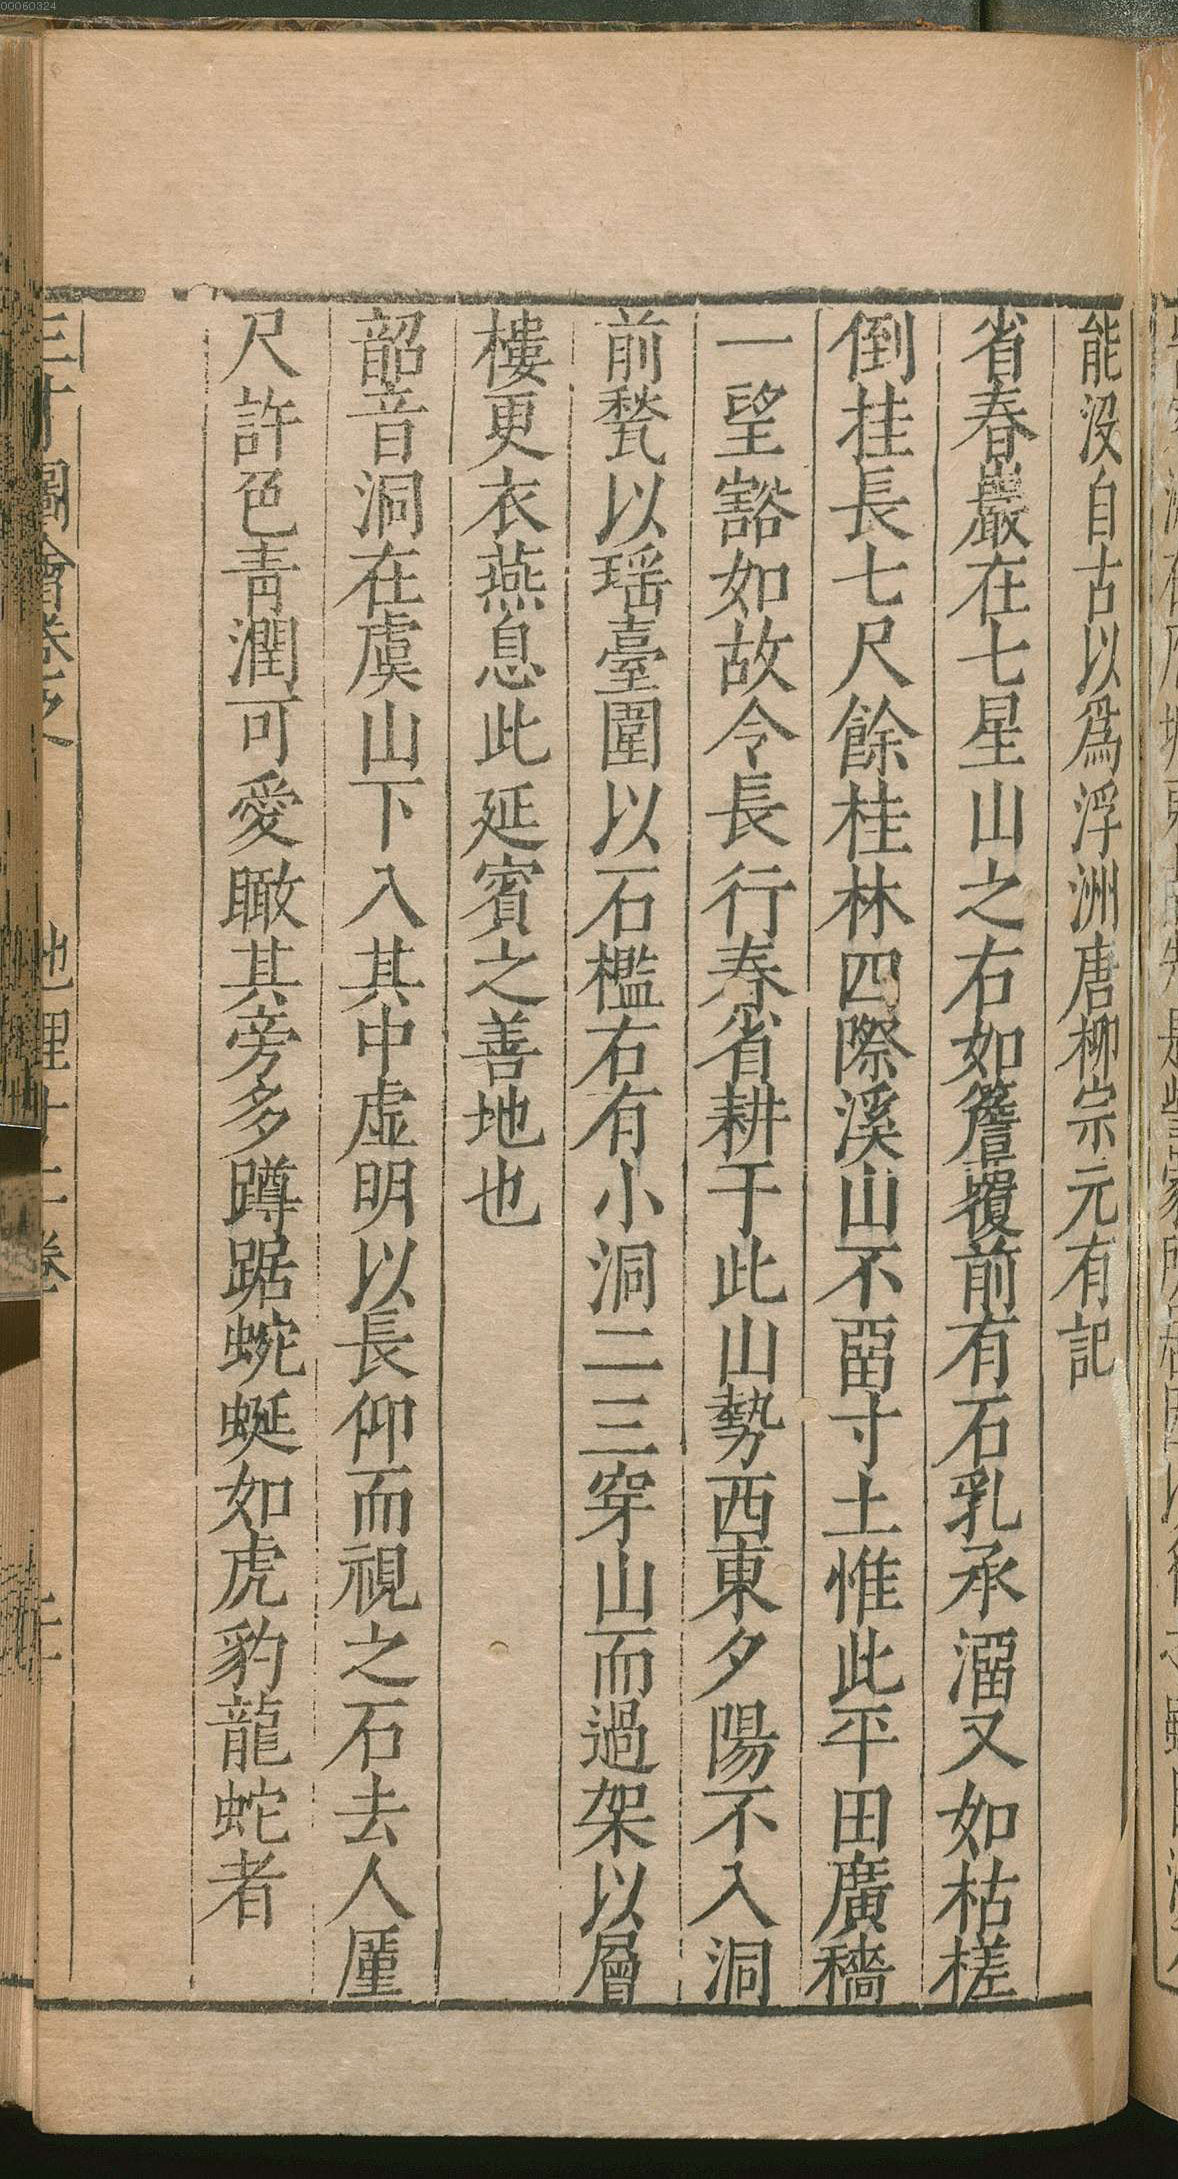 能沒自古以爲浮洲唐柳宗元有記
省春巖在七星山之右如簷覆前有石乳承溜又如枯槎
倒挂長七尺餘桂林四際溪山不畱寸土惟此平田廣穡
一望豁如故令長行春省耕于此山勢西東夕陽不入洞
前甃以瑶臺圍以石檻右有小洞二三穿山而過架以層
樓更衣燕息此延賓之善地也
韶音洞在虞山下入其中虛明以長仰而視之石去人厪
尺許色青潤可愛瞰其旁多蹲踞蜿蜒如虎豹龍蛇者
三才圖會卷之 地理十二卷
00060324